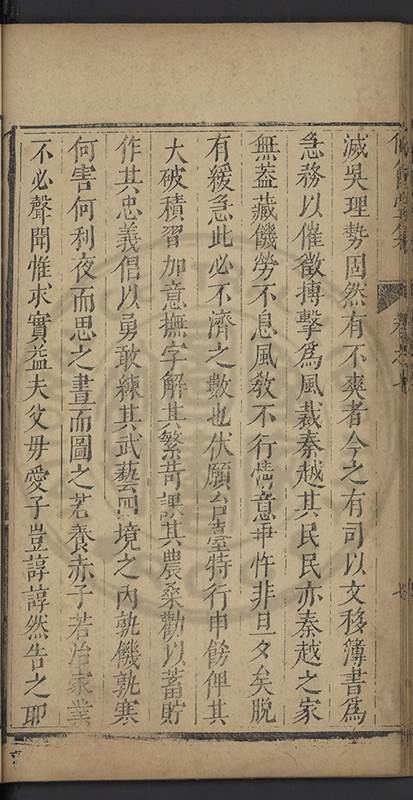 滅吳理勢固然有不爽者今之有司以文移簿書為
急務以催徵搏擊為風裁秦越其民民亦秦越之家
無蓋藏饑勞不息風教不行情意乖忤非旦夕矣脫
有緩急此必不濟之數也伏願台臺特行申飭俾其
大破積習加意撫字解其繁苛課其農桑勸以蓄貯
作其忠義倡以勇敢練其武藝四境之內孰饑孰寒
何害何利夜而思之晝而圖之若養赤子若治家業
不必聲聞惟求實益夫父母愛子豈諄諄然告之耶